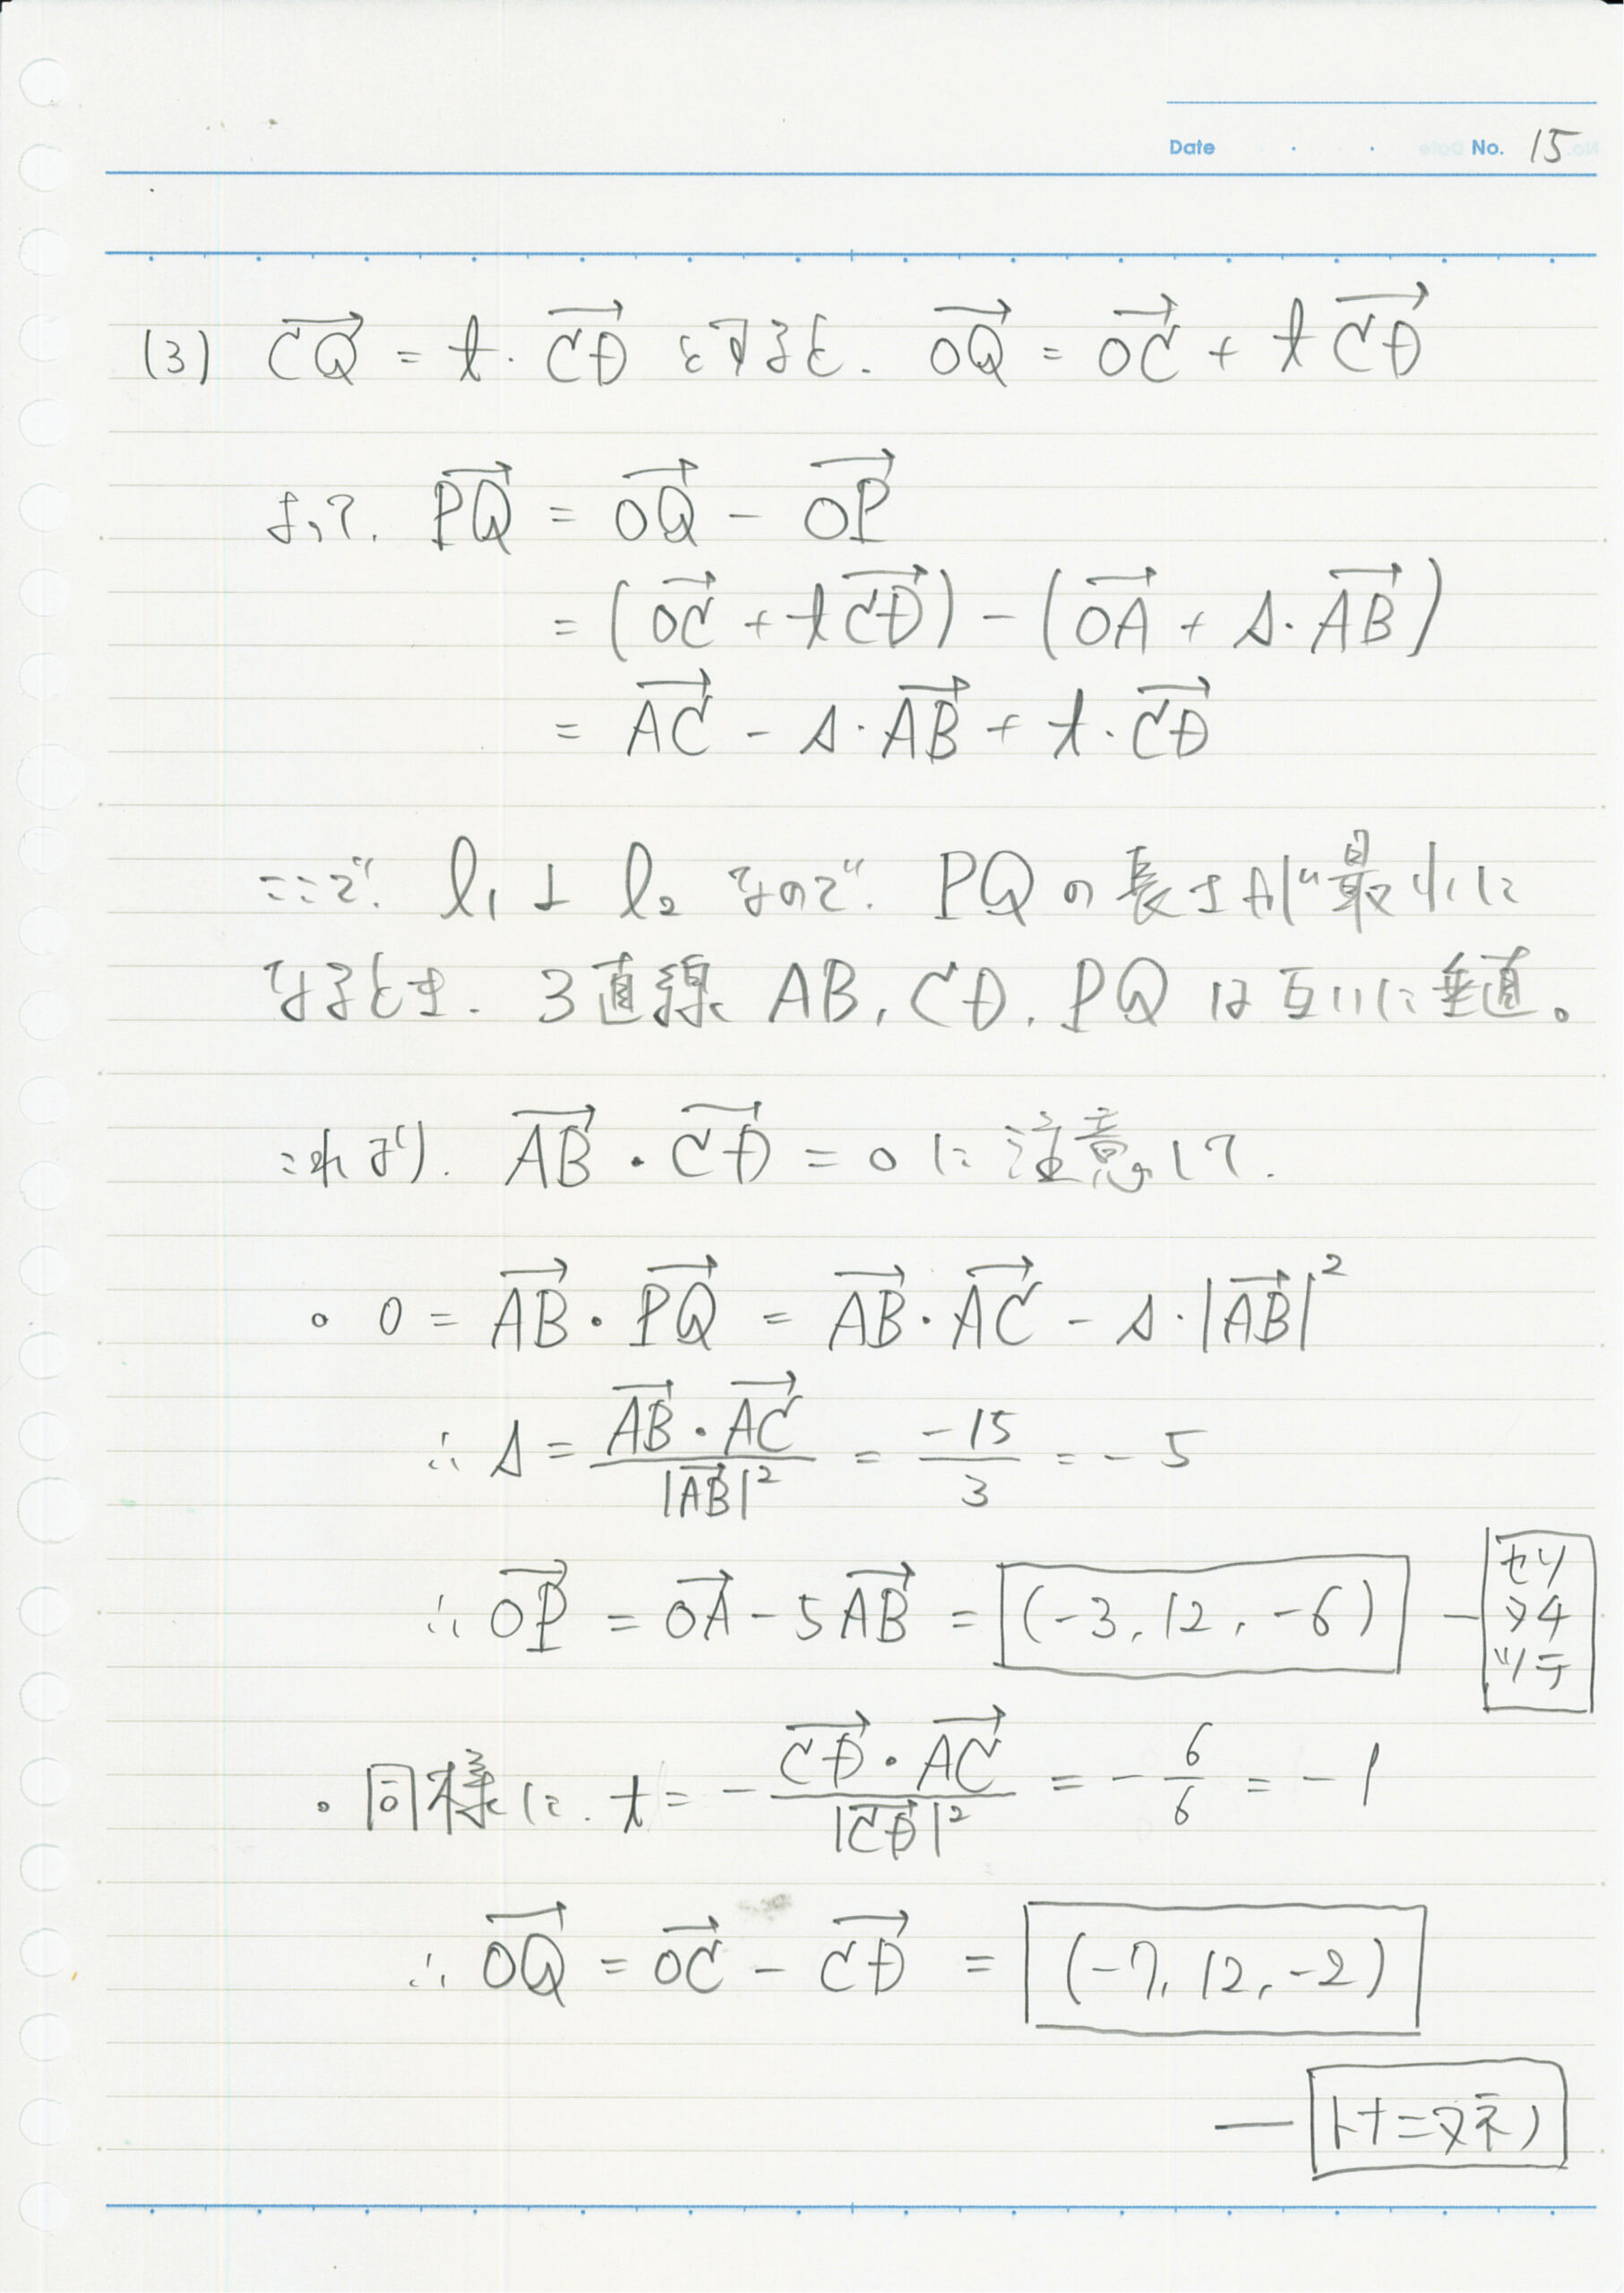 Date No. 15
(3) \overrightarrow{CQ} = t・\overrightarrow{CD} とすると. \overrightarrow{OQ} = \overrightarrow{OC} + t\overrightarrow{CD}
よって. \overrightarrow{PQ} = \overrightarrow{OQ} - \overrightarrow{OP}
= (\overrightarrow{OC} + t\overrightarrow{CD}) - (\overrightarrow{OA} + s・\overrightarrow{AB})
= \overrightarrow{AC} - s・\overrightarrow{AB} + t・\overrightarrow{CD}
ここで. l₁ ⊥ l₂ なので. PQ の長さが最小に
なるとき. 3直線 AB, CD, PQ は互いに垂直。
これより. \overrightarrow{AB}・\overrightarrow{CD} = 0 に注意して.
。0 = \overrightarrow{AB}・\overrightarrow{PQ} = \overrightarrow{AB}・\overrightarrow{AC} - s・|\overrightarrow{AB}|²
∴ s = \frac{\overrightarrow{AB}・\overrightarrow{AC}}{|\overrightarrow{AB}|²} = \frac{-15}{3} = -5
∴ \overrightarrow{OP} = \overrightarrow{OA} - 5\overrightarrow{AB} = (-3, 12, -6) — セソタチツテ
。同様に. t = -\frac{\overrightarrow{CD}・\overrightarrow{AC}}{|\overrightarrow{CD}|²} = -\frac{6}{6} = -1
∴ \overrightarrow{OQ} = \overrightarrow{OC} - \overrightarrow{CD} = (-7, 12, -2)
— トナニヌネノ